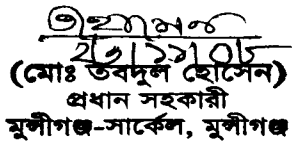 (মোঃ তবদুল হোসেন)
প্রধান সহকারী
মুন্সীগঞ্জ-সার্কেল, মুন্সীগঞ্জ